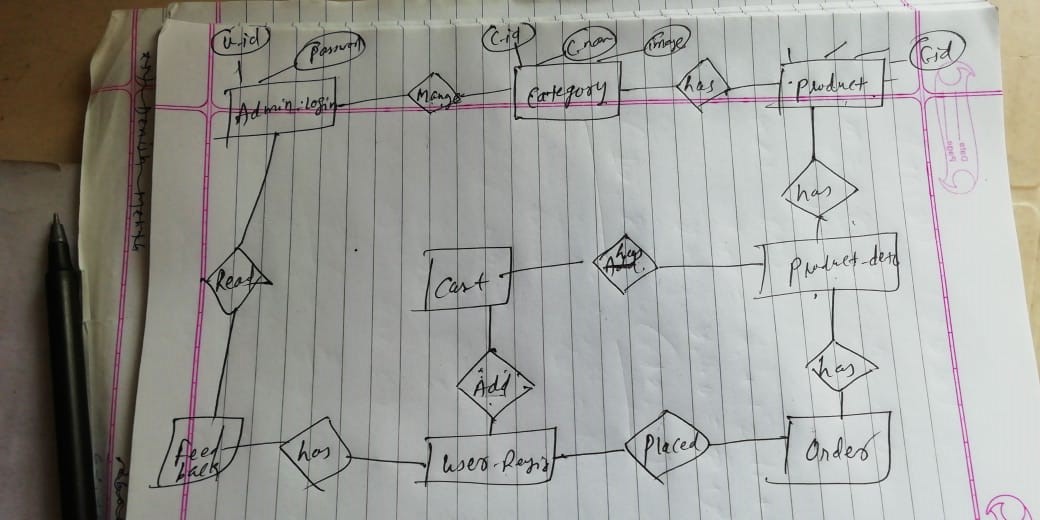 U-id
Password
C-id
C-nam
image
C-id
Admin-login
Mange
Category
has
Product
has
Read
Cart
has
Product-deta
Add
has
feed
back
has
user-Regis
Placed
Order
Page
Date